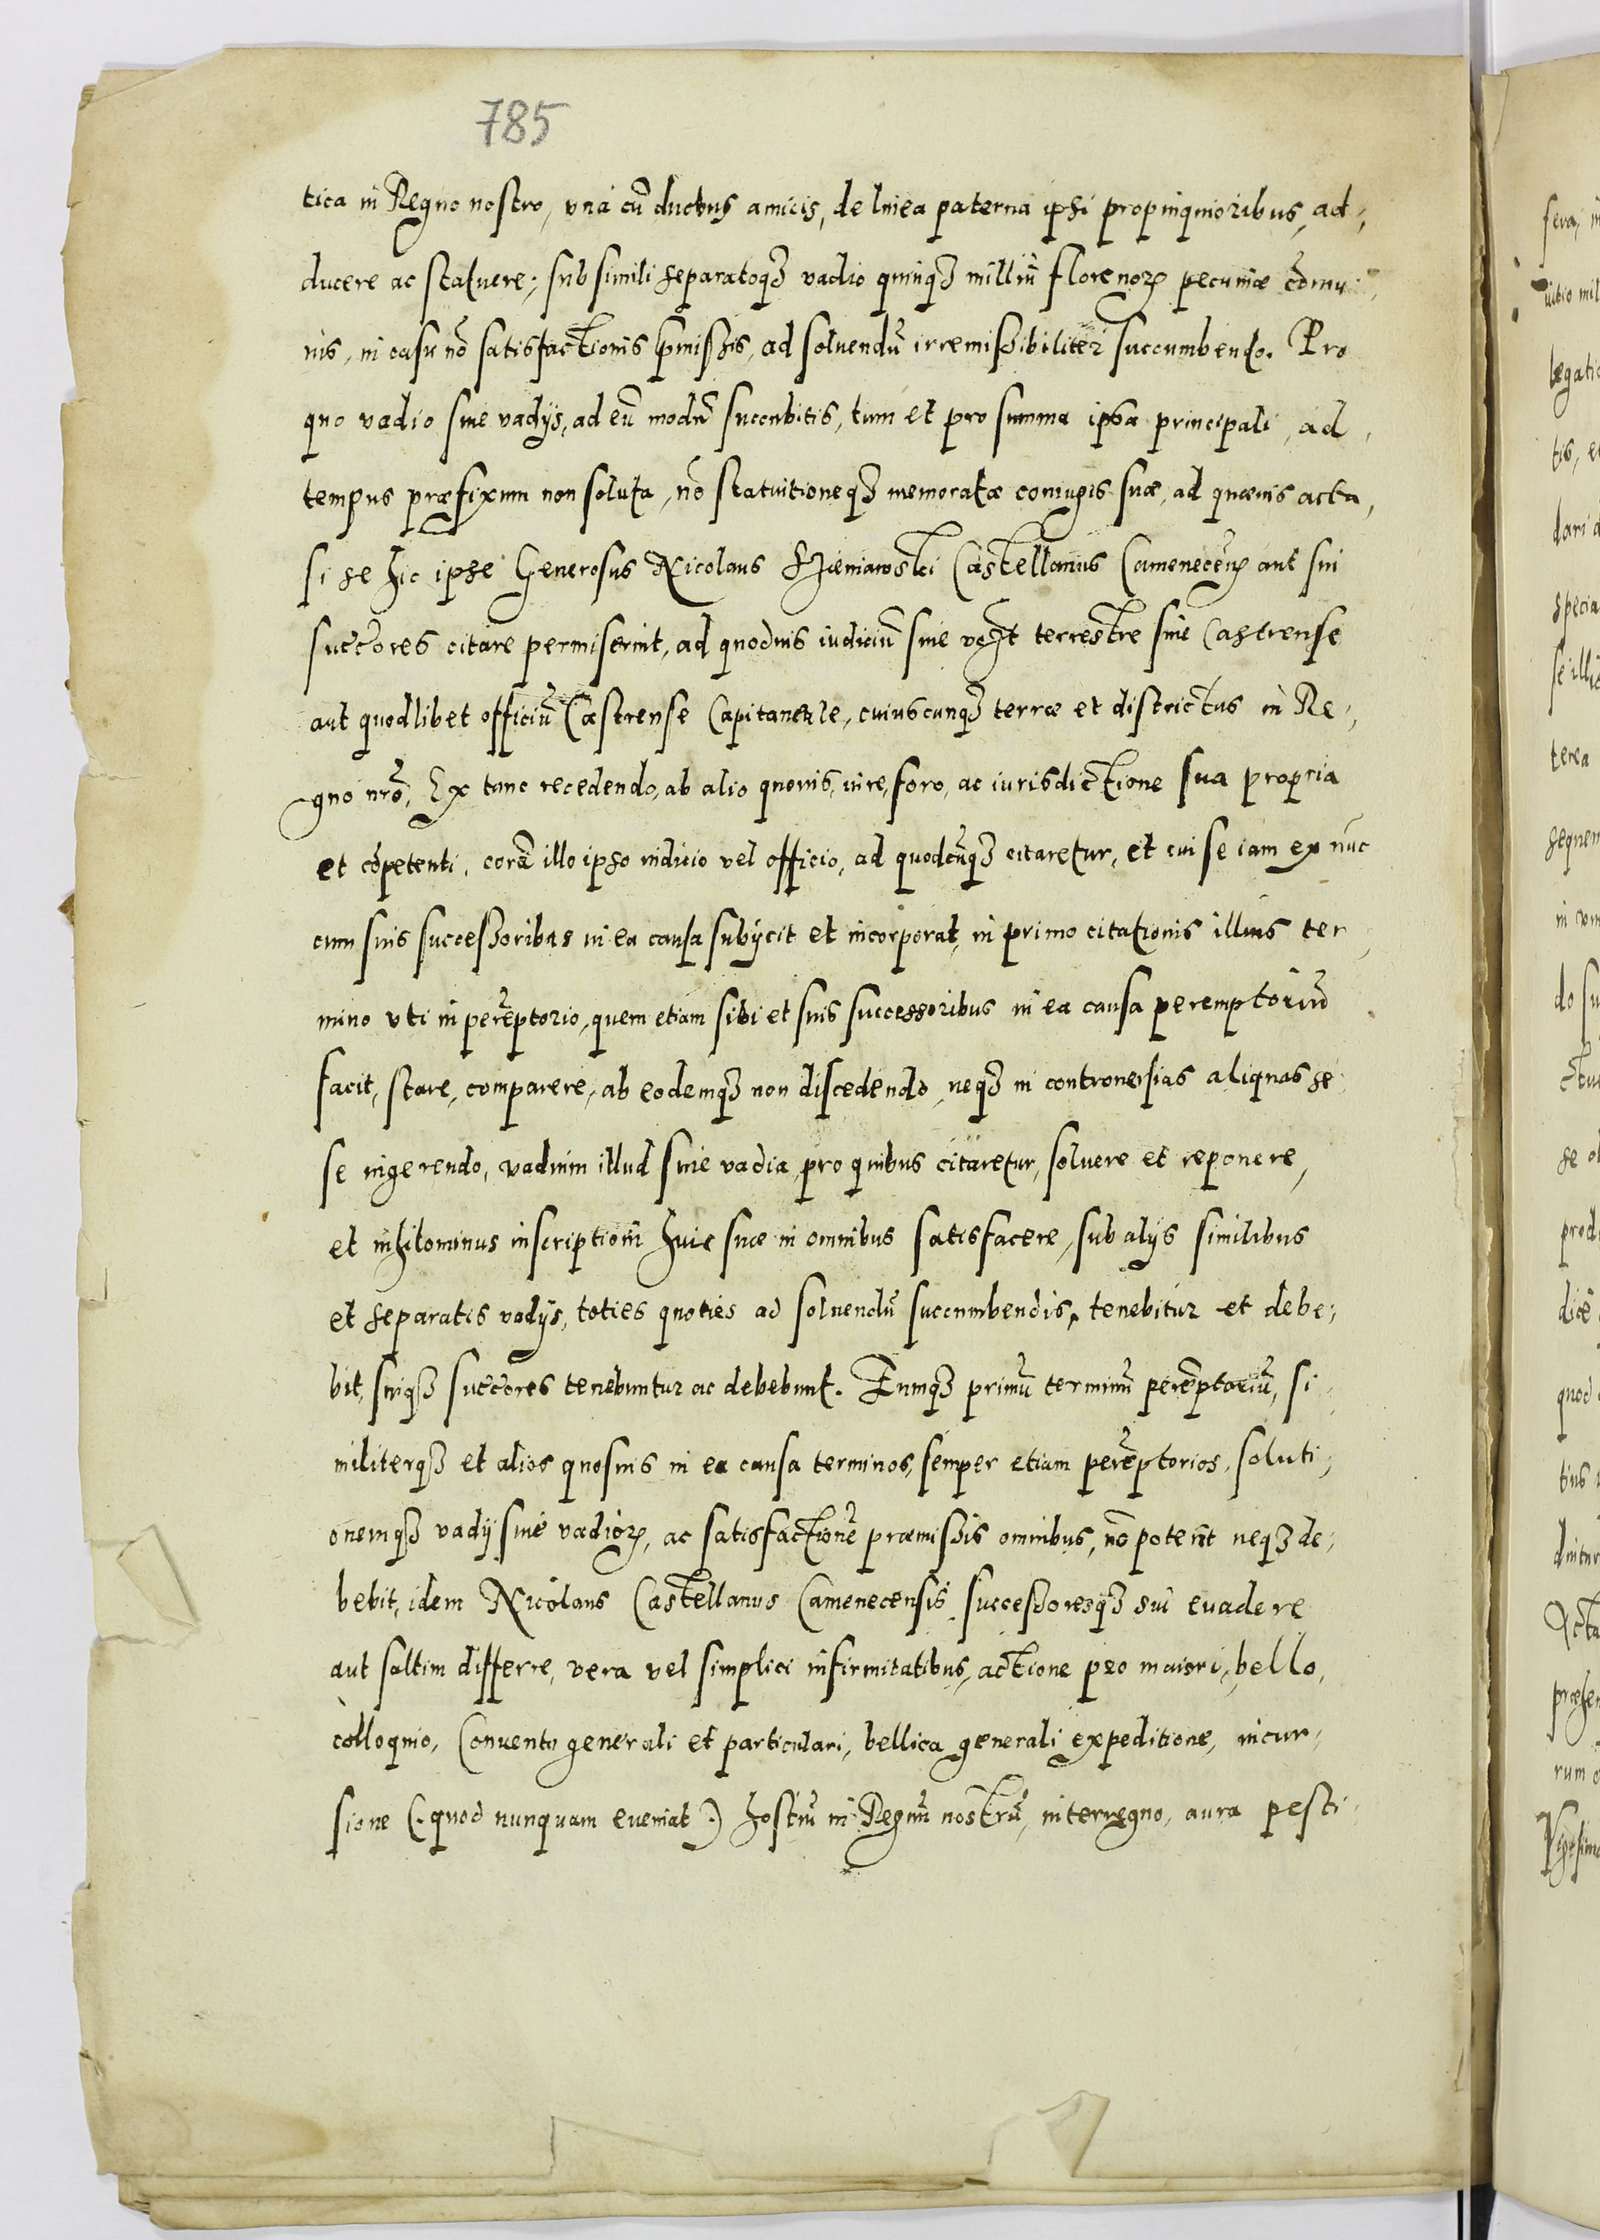 785
tica in Regno nostro, vna cũ duobus amicis, de linea paterna ipsi propinquioribus, ad,
ducere ac statuere; sub simili separatoqȝ vadio quinqȝ milliũ florenoꝝ pecuniæ cõmu
nis, in casu nõ satisfactionis p̃missis, ad soluendũ irremissibiliter succumbendo. Pro
quo vadio siue vadijs, ad eũ modũ succubitis, tum et pro summa ipsa principali, ad,
tempus præfixum non soluta, nõ statuitioneqȝ memoratæ coniugis suæ, ad quæuis acta,
si se hic ipse Generosus Nicolaus Sieniawski Castellanus Cameneceñ aut sui
succ̃ores citare permiserint, ad quoduis iudiciũ siue terrestre siue Castrense
aut quodlibet officiũ Castrense Capitaneale, cuiuscunqȝ terræ et districtus in Re,
gno nrõ, Ex tunc recedendo, ab alio quouis, iure, foro, ac iurisdictione sua propria
et cõpetenti, corã illo ipso iudicio vel officio, ad quodcũqȝ citaretur, et cui se iam ex nũc
cum suis successoribus in ea causa subijcit et incorporat, in primo citationis illius ter,
mino vti in perẽptorio, quem etiam sibi et suis successoribus in ea causa peremptoriũ
facit, stare, comparere, ab eodemqȝ non discedendo, neqȝ in controuersias aliquas se
se ingerendo, vadium illud siue vadia, pro quibus citaretur, soluere et reponere,
et nihilominus inscriptioni huic suæ in omnibus satisfacere, sub alijs similibus
et separatis vadijs, toties quoties ad soluendũ succumbendis, tenebitur et debe,
bit, suiqȝ succ̃ores tenebuntur ac debebunt. Eumqȝ primũ terminũ perẽptoriũ, si
militerqȝ et alios quosuis in ea causa terminos, semper etiam perẽptorios, soluti,
onemqȝ vadij siue vadioꝝ, ac satisfactionẽ præmissis omnibus, nõ poterit neqȝ de,
bebit, idem Nicolaus Castellanus Camenecensis successoresqȝ sui euadere
aut saltim differre, vera vel simplici infirmitatibus, actione pro maiori, bello,
colloquio, Conuentu generali et particulari, bellica generali expeditione, incur,
sione (. quod nunquam eueniat .) hostiũ in Regnũ nostrũ, interregno, aura pesti,